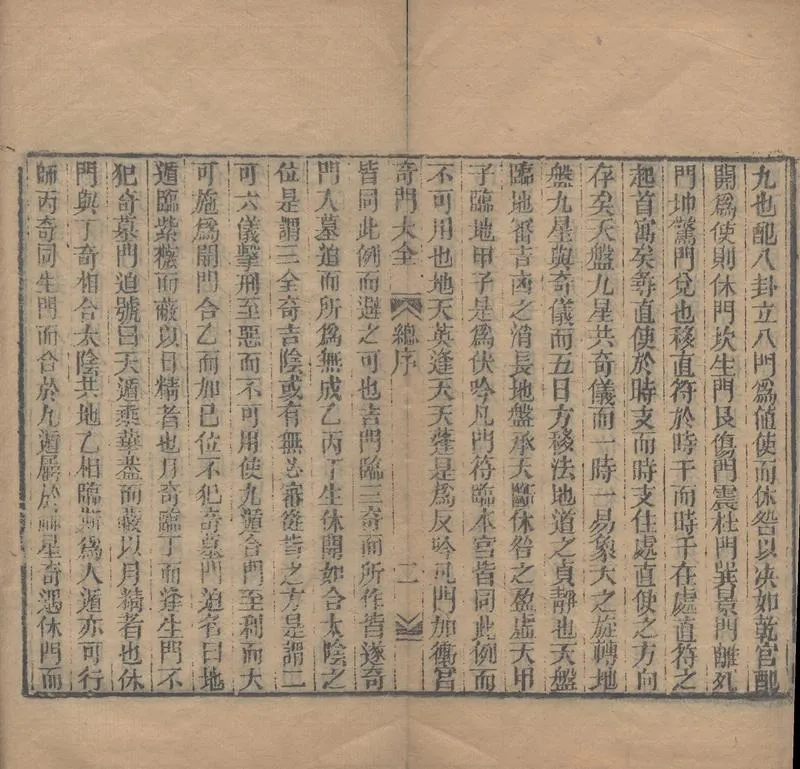 九也配八卦立八門爲値使而休咎以決如乾宮配
開爲使則休門坎生門艮傷門震杜門巽景門離死
門坤驚門兌也移直符於時干而時干在處直符之
起首寓矣尋直使於時支而時支住處直使之方向
存矣天盤九星共奇儀而一時一易象大之旋轉地
盤九星與奇儀而五日方移法地道之貞靜也天盤
臨地番吉凶之消長地盤承天斷休咎之盈虛天甲
子臨地甲子是爲伏吟凡門符臨本宮皆同此例而
不可用也地天英逢天天蓬是爲反吟凡門加衝宮
奇門大全 總序 二
皆同此例而避之可也吉門臨三奇而所作皆遂奇
門入墓迫而所爲無成乙丙丁生休開如合太陰之
位是謂三全奇吉陰或有無必審從皆之方是謂二
可六儀擊刑至惡而不可用使九遁合門至利而大
可施爲開門合乙而加己位不犯奇墓門迫者曰地
遁臨紫微而蔽以日精者也月奇臨丁而逢生門不
犯奇墓門迫號曰天遁乘華蓋而蔽以月精者也休
門與丁奇相合太陰共地乙相臨斯爲人遁亦可行
師丙奇同生門而合於九遁 於 星奇遇休門而